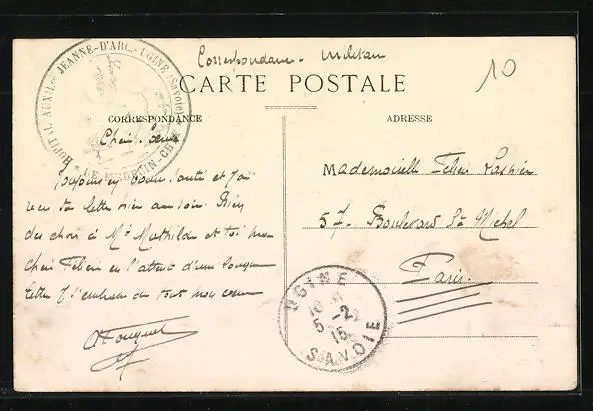 Correspondance - Militaire
CARTE POSTALE
10
HOPITAL AUXILre JEANNE-D'ARC - UGINE (Savoie)
LE MÉDECIN-CHEF
CORRESPONDANCE
ADRESSE
Toujours en bonne santé et j'ai
reçu ta lettre hier au soir. Bien
des choses à Me Mathilde et toi ma
en l'attente d'une longue
lettre je t'embrasse de tout mon coeur
Mademoiselle
57. Boulevard St Michel
Paris.
UGINE
5-2
15
SAVOIE